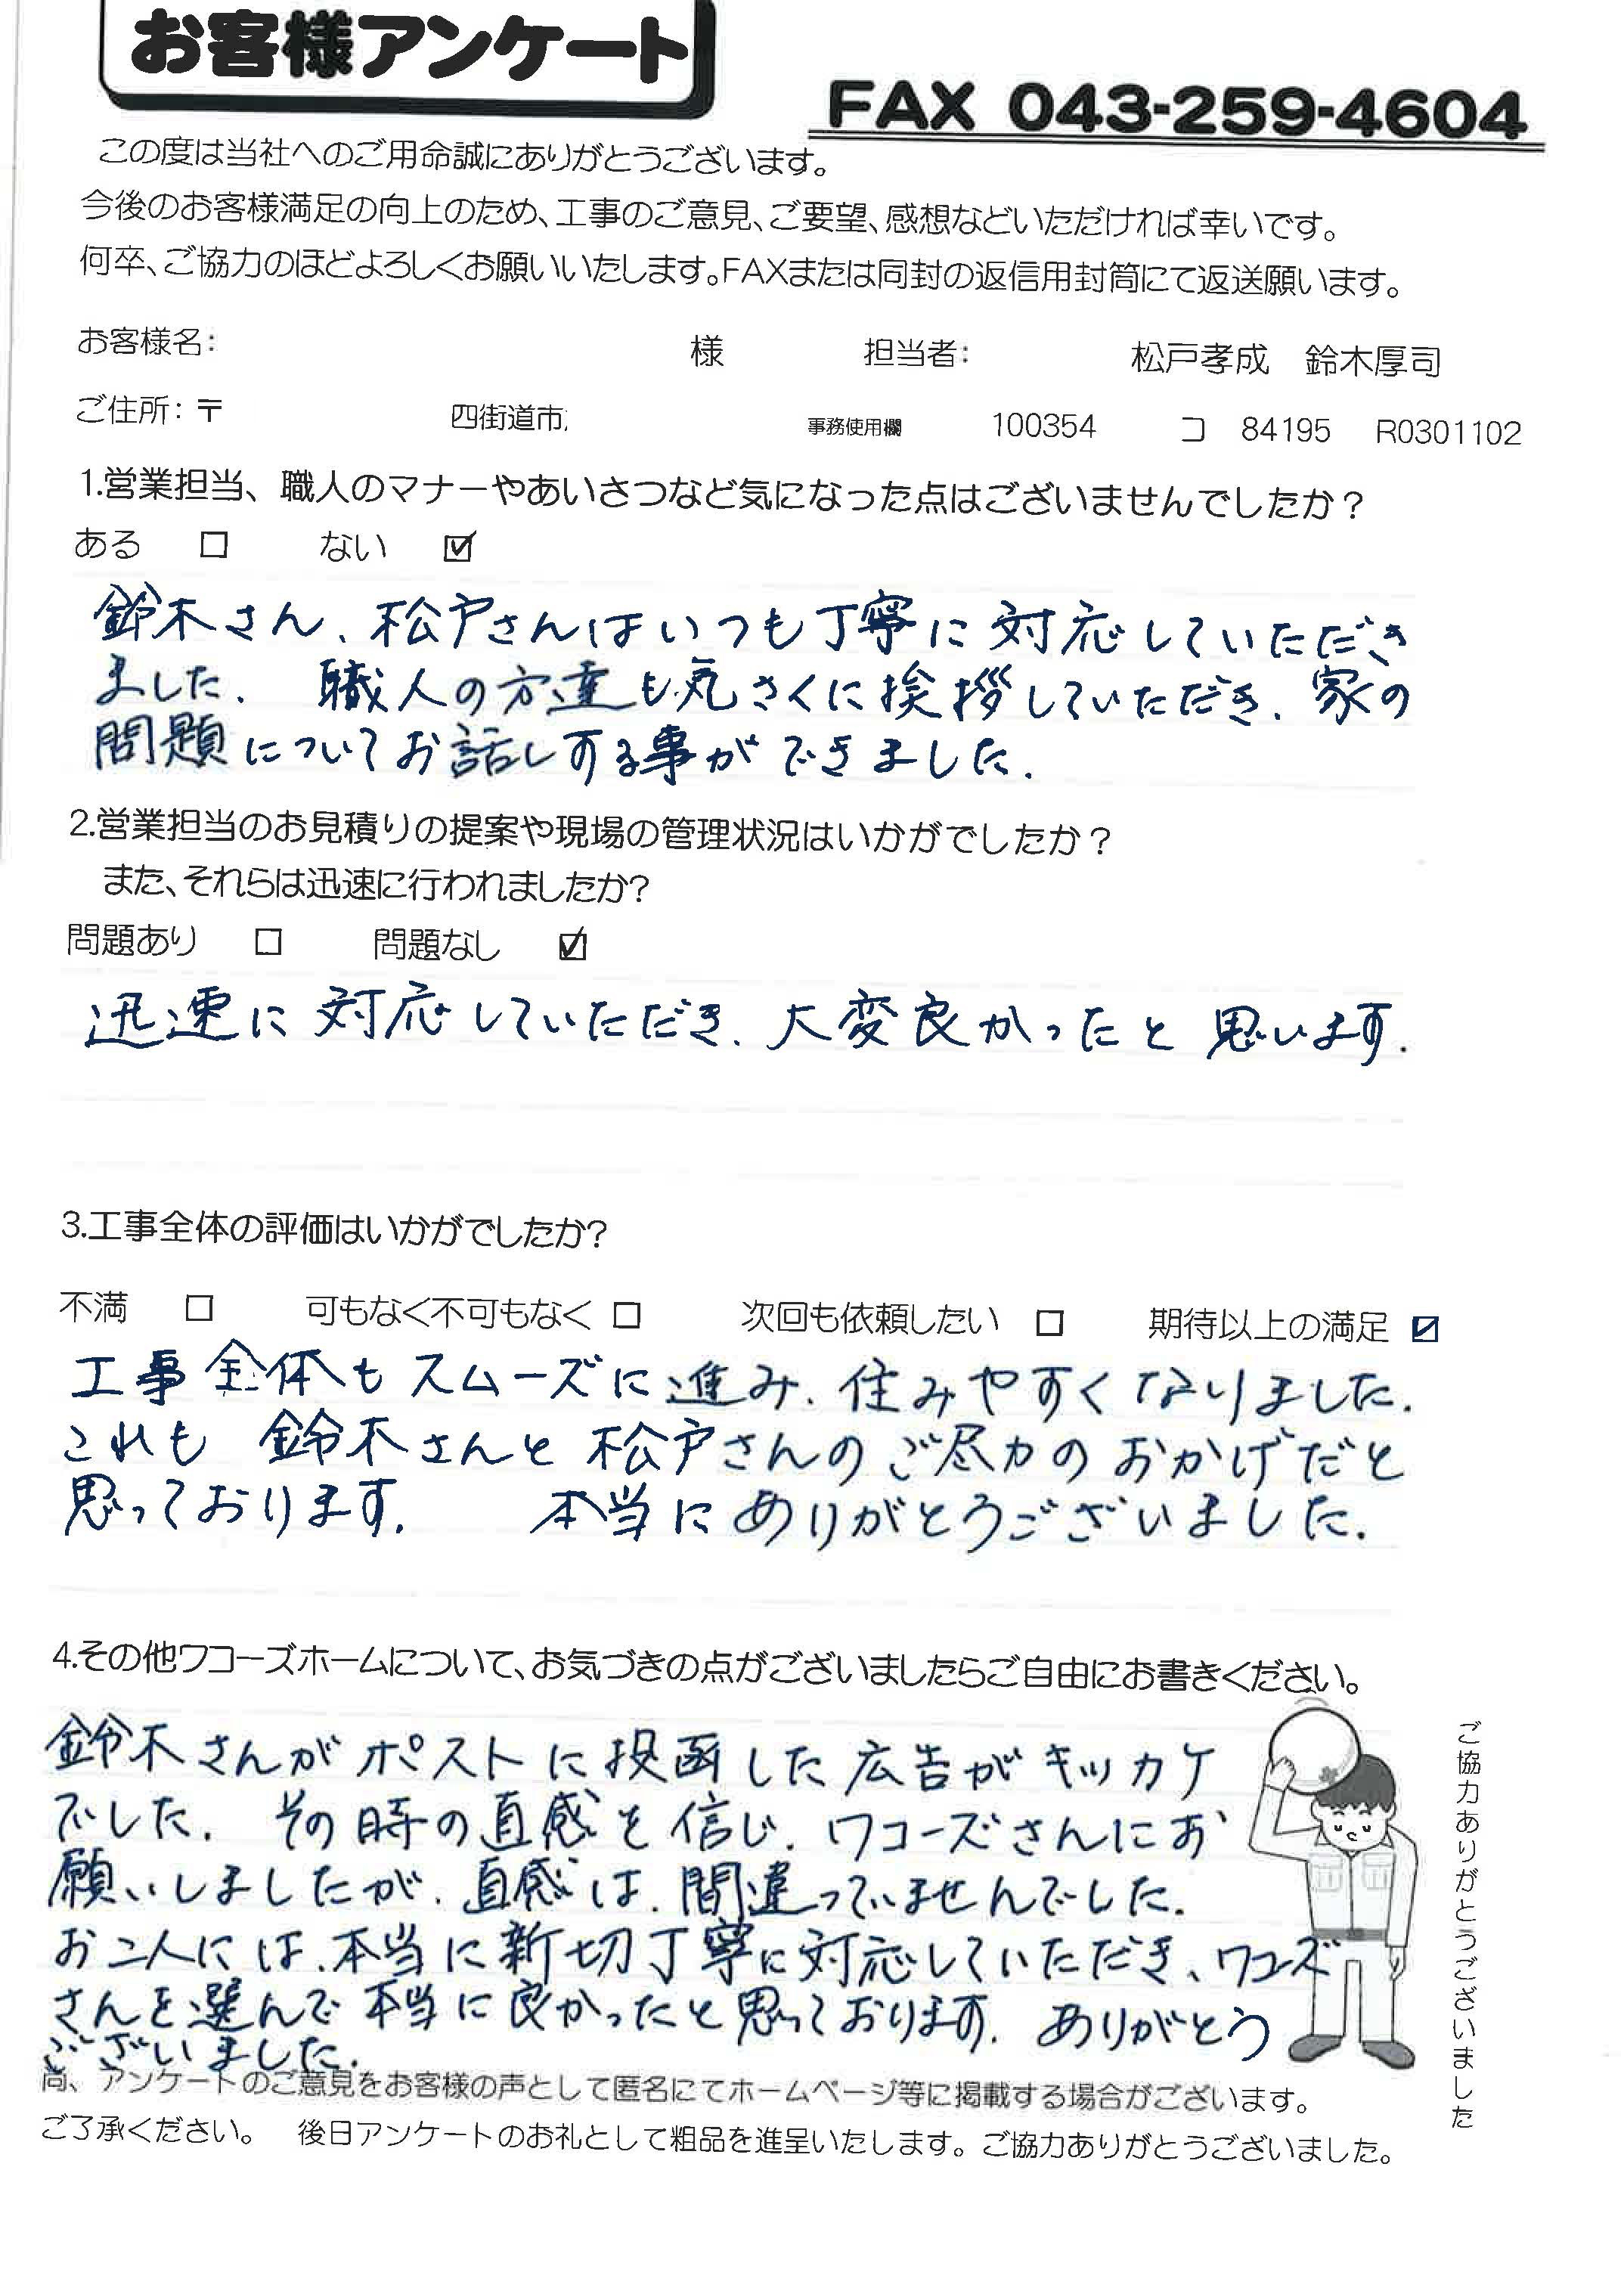 お客様アンケート
FAX 043-259-4604
この度は当社へのご用命誠にありがとうございます。
今後のお客様満足の向上のため、工事のご意見、ご要望、感想などいただければ幸いです。
何卒、ご協力のほどよろしくお願いいたします。FAXまたは同封の返信用封筒にて返送願います。
お客様名: 様 担当者: 松戸孝成 鈴木厚司
ご住所:〒 四街道市 事務使用欄 100354 コ 84195 R0301102
1.営業担当、職人のマナーやあいさつなど気になった点はございませんでしたか？
ある □ ない ☑
鈴木さん、松戸さんはいつも丁寧に対応していただき
ました. 職人の方達も気さくに挨拶していただき、家の
問題についてお話しする事ができました.
2.営業担当のお見積りの提案や現場の管理状況はいかがでしたか？
また、それらは迅速に行われましたか?
問題あり □ 問題なし ☑
迅速に対応していただき、大変良かったと思います.
3.工事全体の評価はいかがでしたか?
不満 □ 可もなく不可もなく □ 次回も依頼したい □ 期待以上の満足 ☑
工事全体もスムーズに進み、住みやすくなりました.
これも鈴木さんと松戸さんのご尽力のおかげだと
思っております. 本当にありがとうございました.
4.その他ワコーズホームについて、お気づきの点がございましたらご自由にお書きください。
鈴木さんがポストに投函した広告がキッカケ
でした. その時の直感を信じ、ワコーズさんにお
願いしましたが、直感は、間違っていませんでした.
お二人には、本当に親切丁寧に対応していただき、ワコーズ
さんを選んで本当に良かったと思っております. ありがとう
ございました.
尚、アンケートのご意見をお客様の声として匿名にてホームページ等に掲載する場合がございます。
ご了承ください。 後日アンケートのお礼として粗品を進呈いたします。ご協力ありがとうございました。
ご協力ありがとうございました